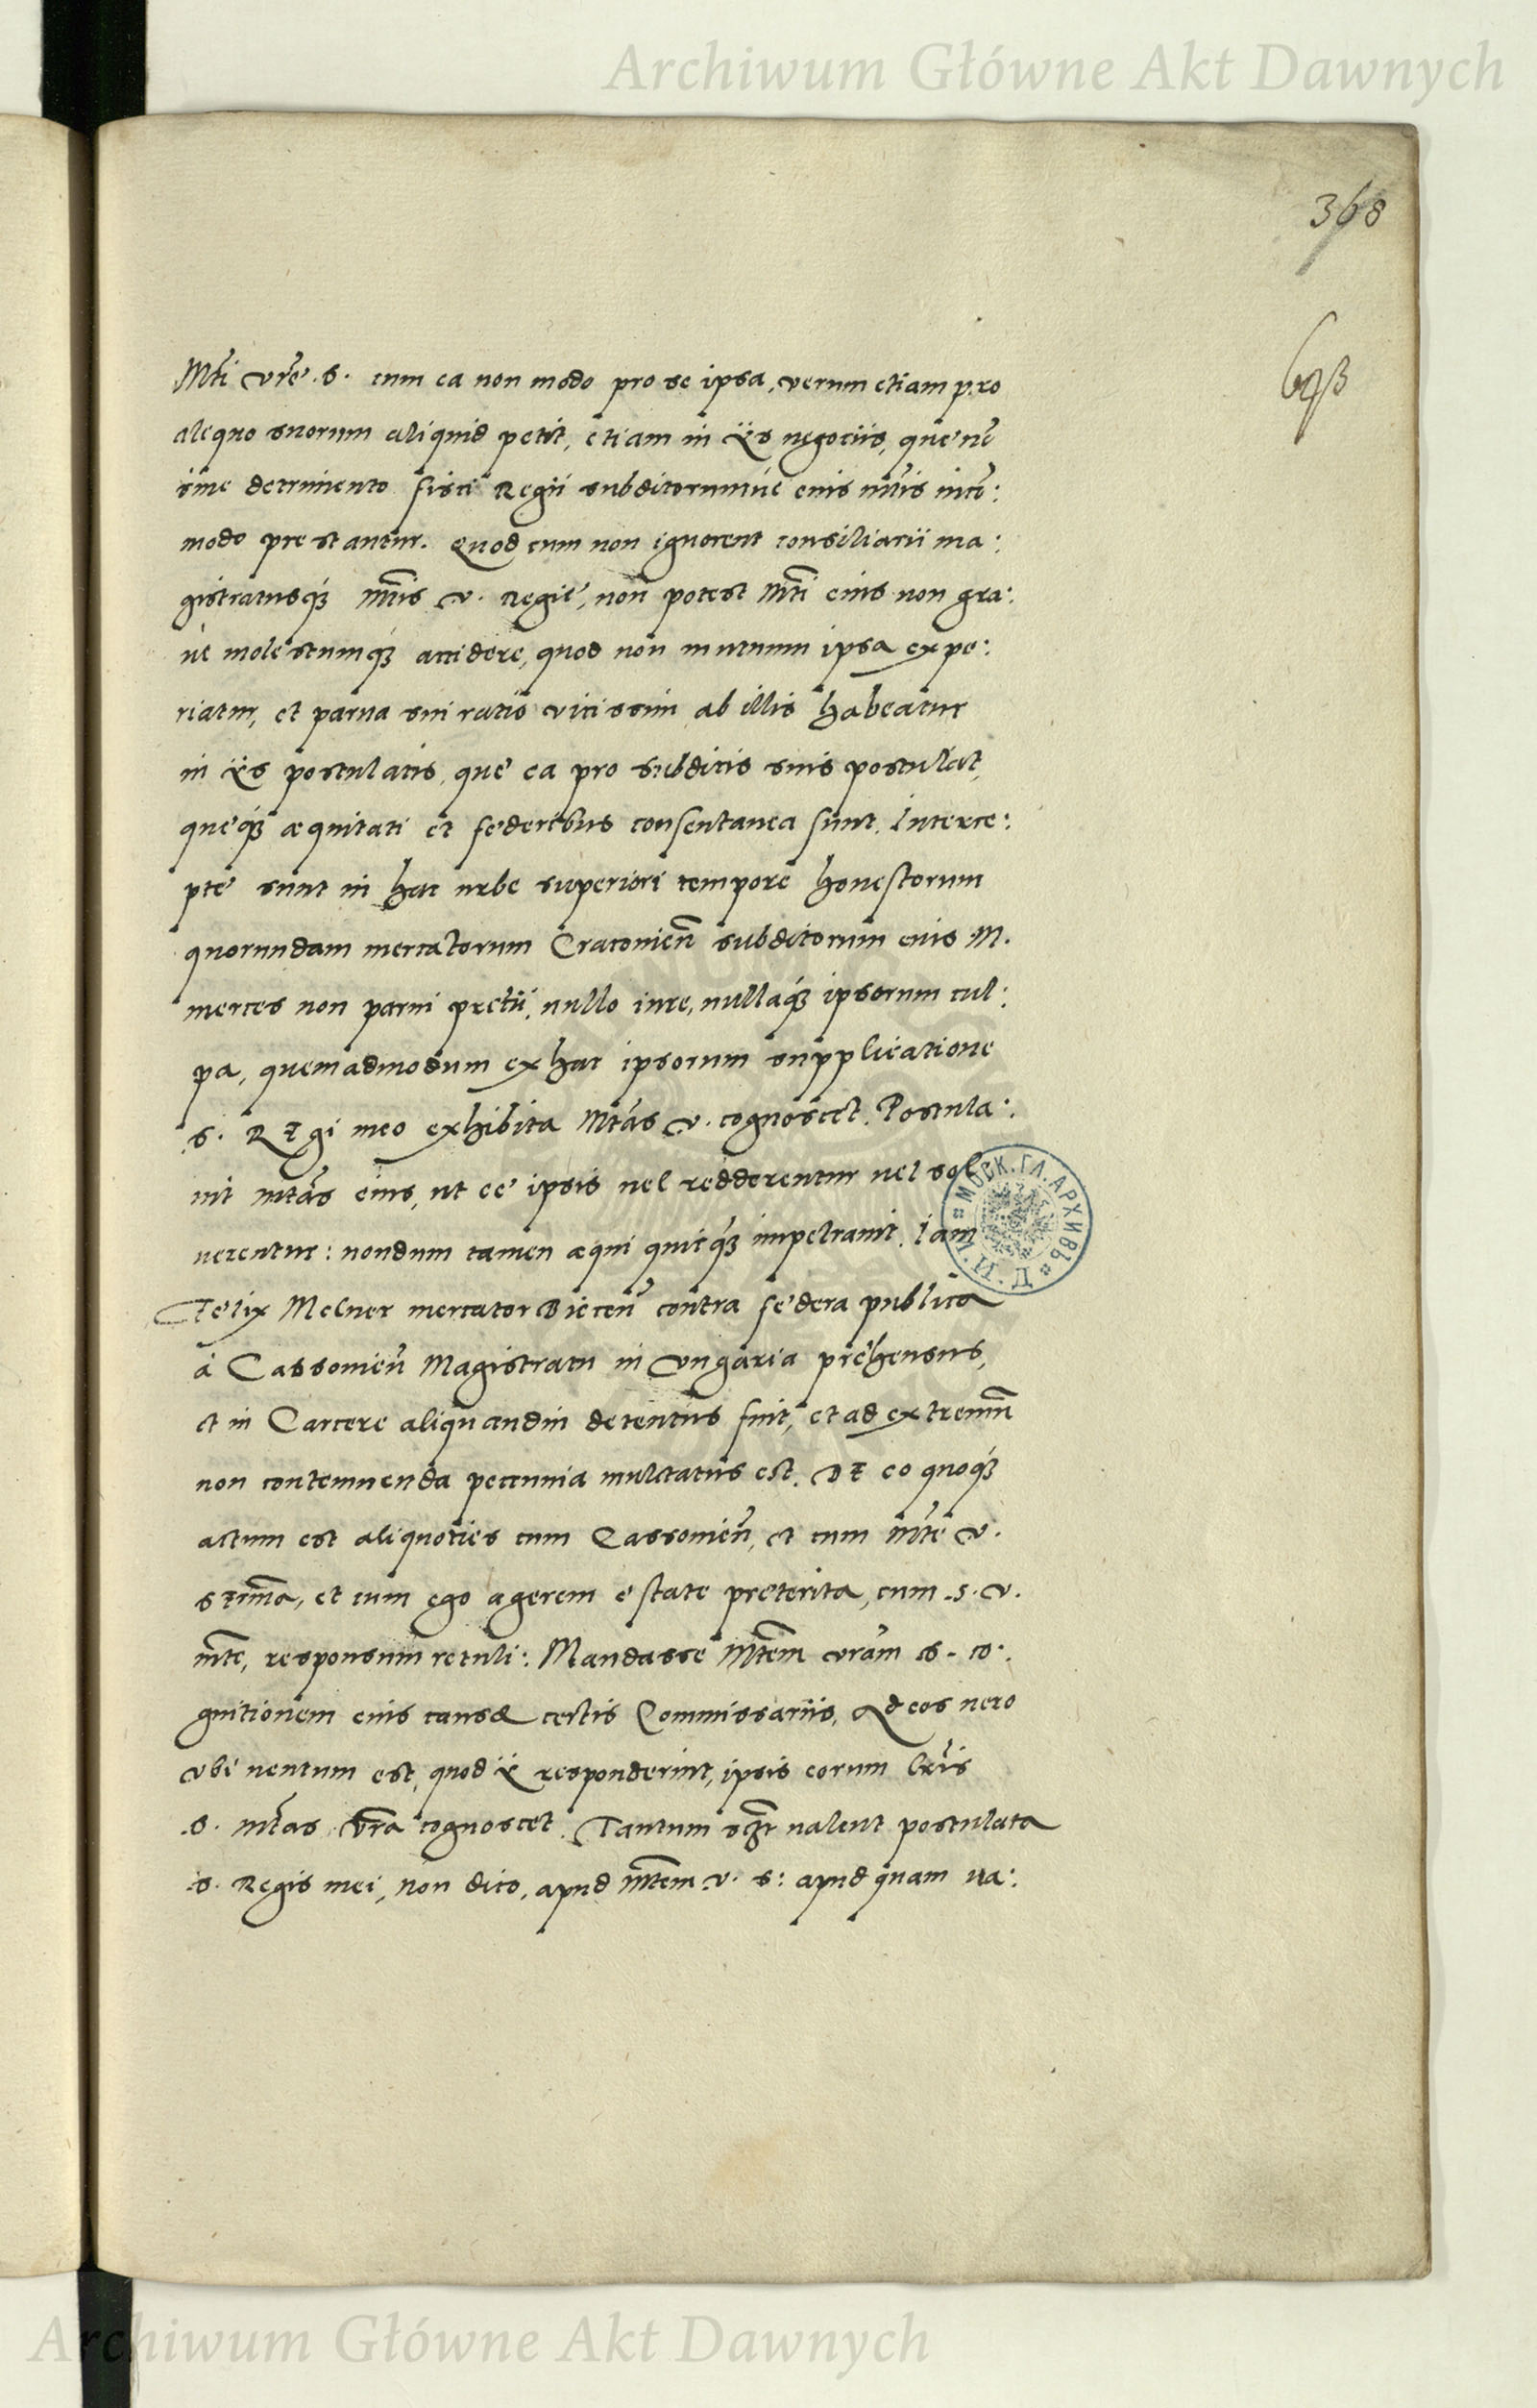 Archiwum Główne Akt Dawnych
368
Mti vrẽ .S. cum ea non modo pro se ipsa, verum etiam pro
aliquo suorum aliquid petit, etiam in ijs negociis, que nõ
sine detrimento fisci Regii subditorumue eius
modo prestantur. Quod cum non ignorent consiliarii ma:
gistratusq3 Mtis v. Regie, non potest Mti eius non gra:
ue molestumq3 accidere, quod non mutuum ipsa expe:
riatur, et parua sui ratio vicissim ab illis habeatur
in ijs postulatis, que ea pro subditis suis postulat,
queq3 æquitati et federibus consentanea sunt. Interce:
pte sunt in hac urbe superiori tempore honestorum
quorundam mercatorum Cracovieñ subditorum eius M.
merces non parui pretii, nullo iure, nullaq3 ipsorum cul:
pa, quemadmodum ex hac ipsorum supplicatione
S. Regi meo exhibita Mtas v. cognoscet. Postula:
uit Mtas eius, ut ee ipsis uel redderentur uel sol
uerentur: nondum tamen æqui quicq3 impetrauit. Iam
Felix Melner mercator Bieceñ contra federa publica
à Cassovieñ Magistratu in Vngaria prehensus,
et in Carcere aliquandiu detentus fuit, et ad extremũ
non contemnenda pecunia mulctatus est. De eo quoq3
actum est aliquoties cum Cassovieñ, et cum Mte v.
Serma, et cum ego agerem estate preterita, cum .S. v.
Mte, responsum retuli: Mandasse Mtem vram S. co:
gnitionem eius causæ certis Commissariis. Ad eos uero
vbi uentum est, quod ij responderint, ipsis eorum lris
.S. Mtas vra cognoscet. Tantum scr ualent postulata
.S. Regis mei, non dico, apud Mtem v. S: apud quam ua:
МОСК. ГЛ. АРХИВЪ
Archiwum Główne Akt Dawnych